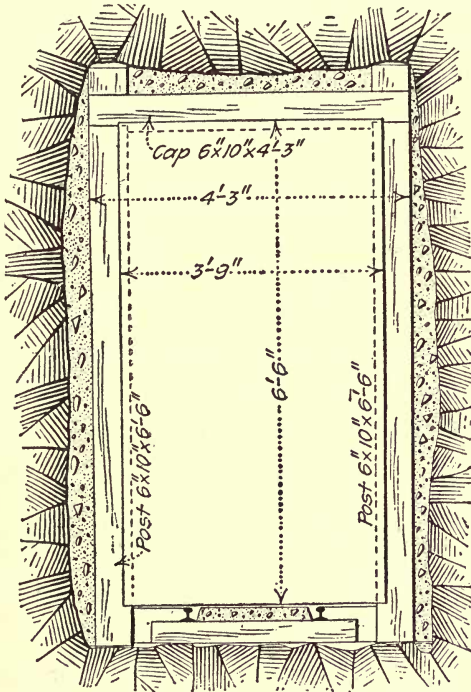 Cap 6"x10"x4'-3"
4'-3"
3'-9"
6'-6"
Post 6"x10"x6'-6"
Post 6"x10"x6'-6"